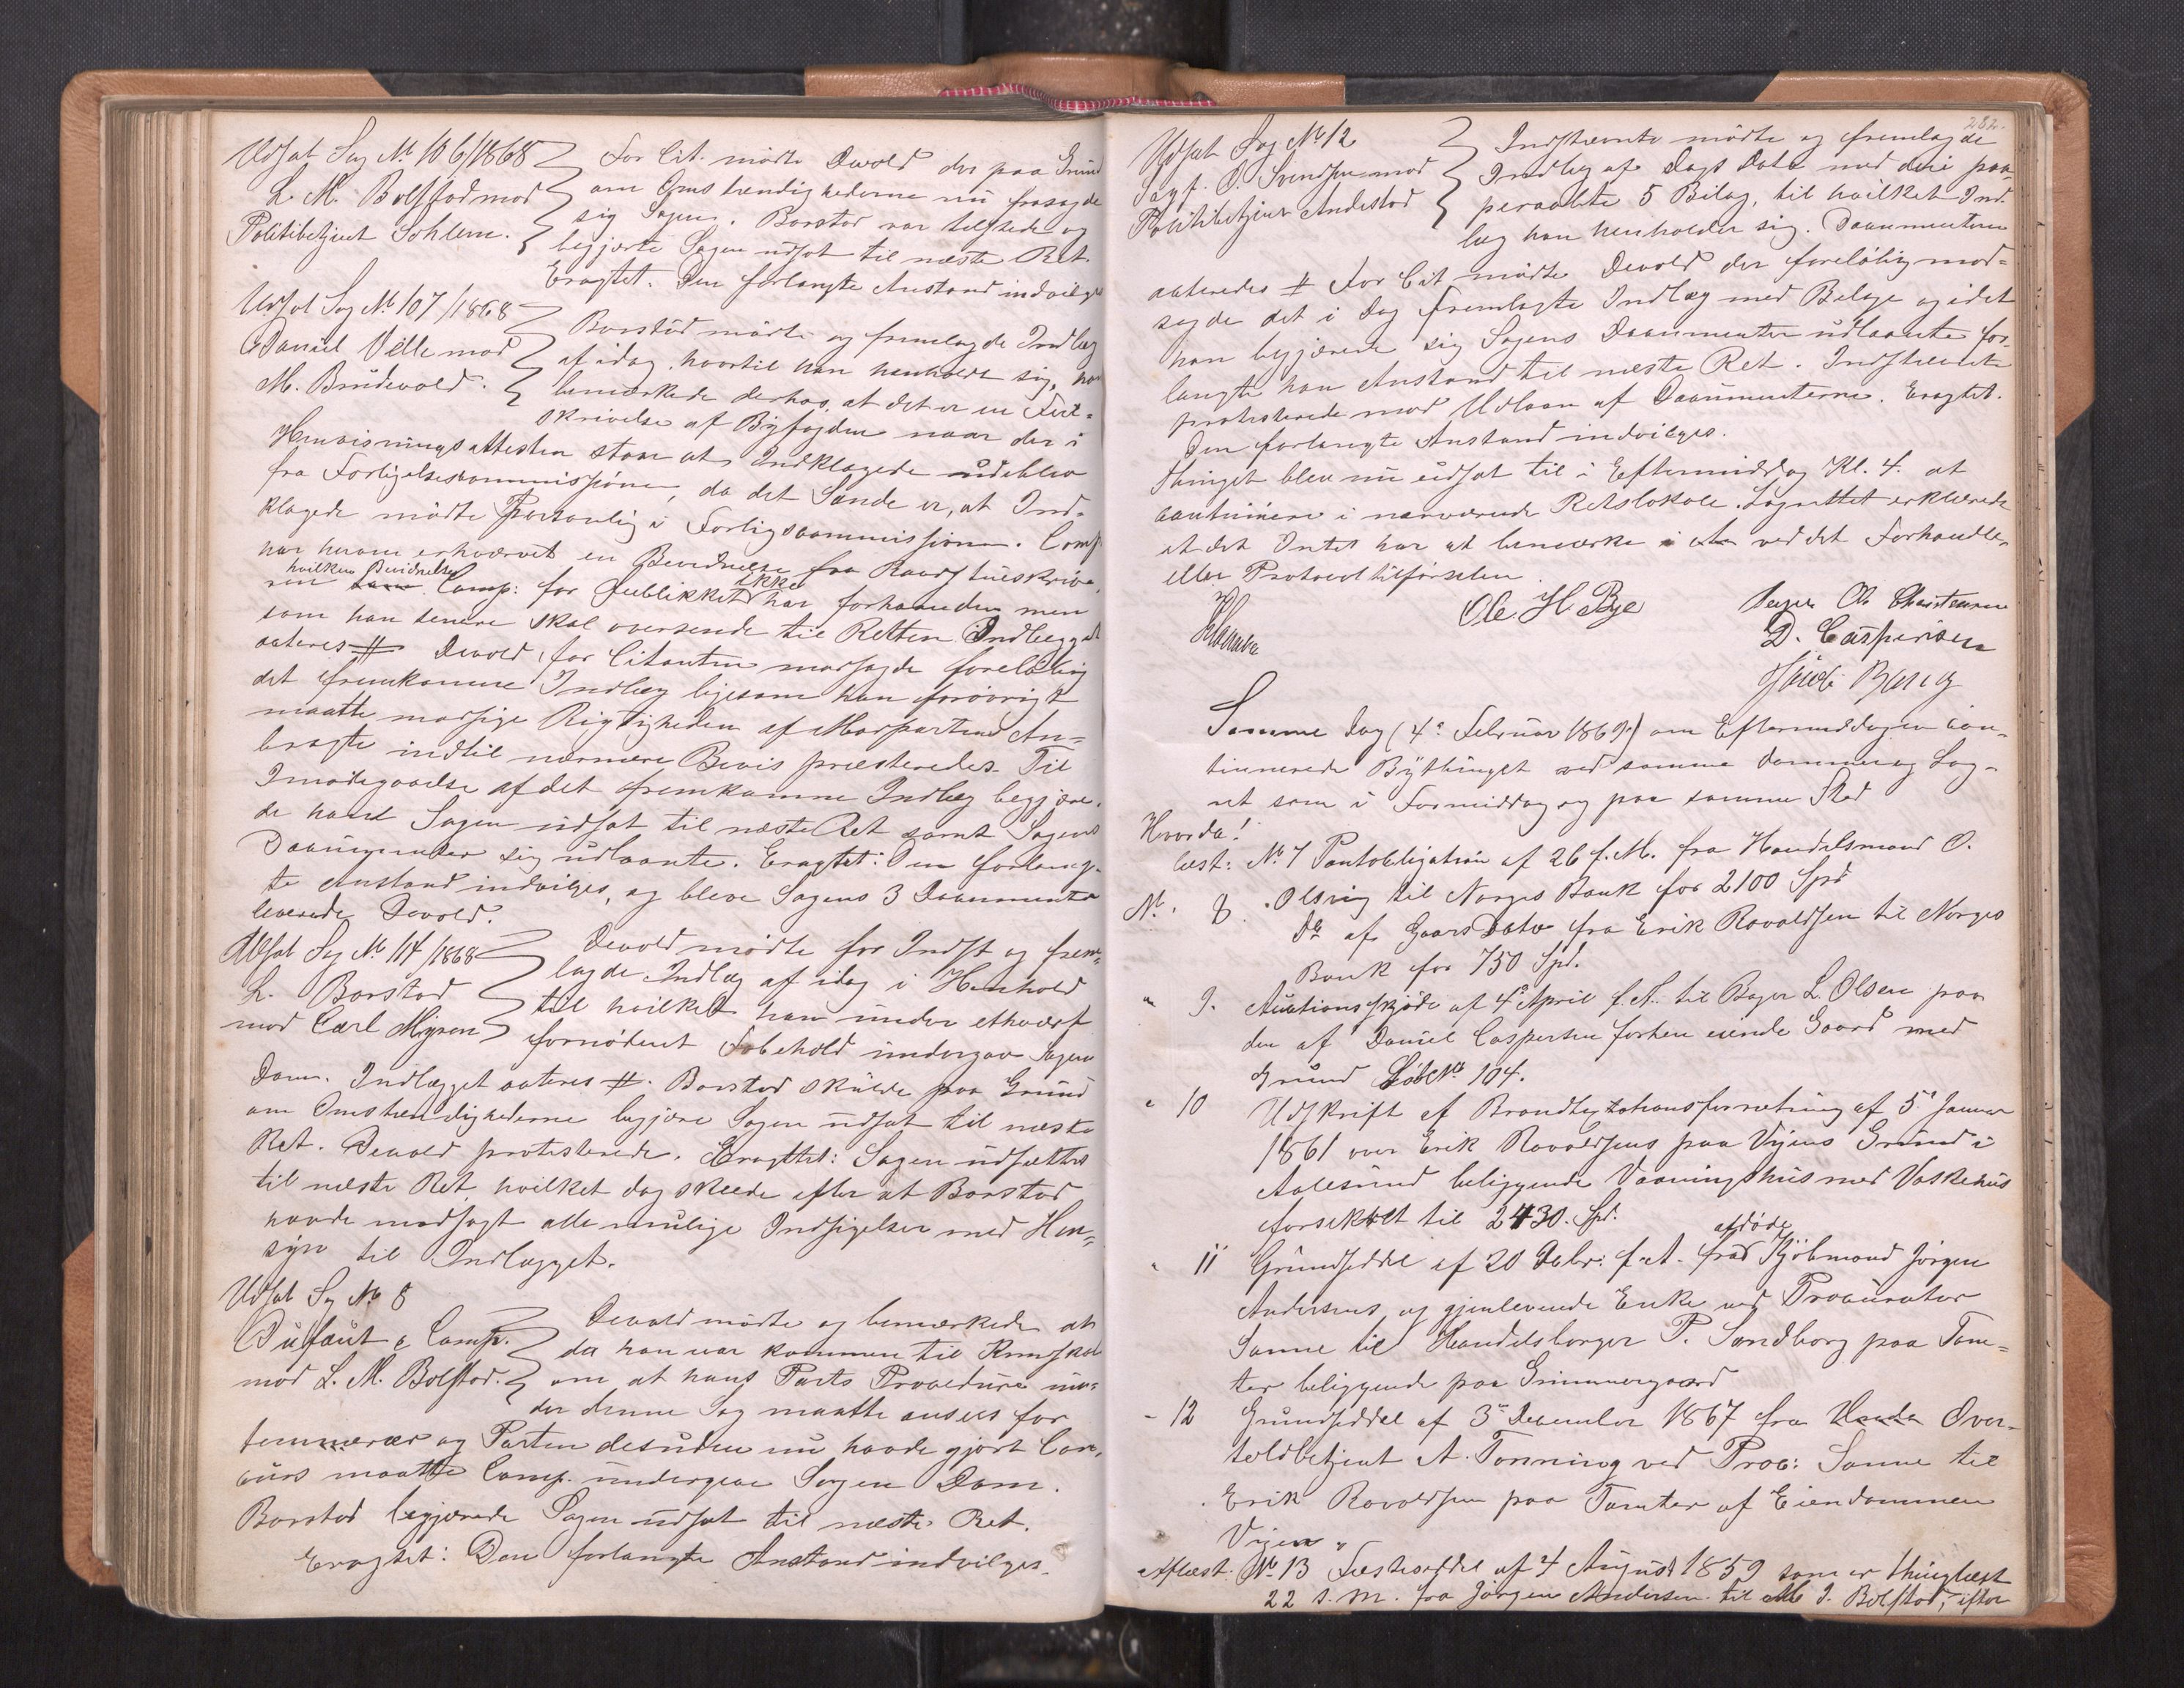 Udsat Sag No 106/1868
L. M. Bolstad mod
Politibetjent Sohlem.
For Cit. mödte Devold der paa Grund
om Omstændighederne nu frasagde
sig Sagen. Borstad var tilstede og
begjærte Sagen udsat til næste Ret.
Eragtet: Den forlangte Anstand indvilges
Udsat Sag No 107/1868
Daniel Ville mod
M. Brudevold.
Borstad mödte og fremlagde Indlæg
af idag, hvortil han henholdt sig, han
bemærkede derhos, at det er en Feil-
skrivelse af Byfogden naar der i
Henvisningsattesten staar at Indklagede udeblev
fra Forligelsescommissionen, da det Sande er, at Ind-
klagede mödte personlig i Forligscommissionen. Comp.
har herom erhvervet en Bevidnelse fra Raadstueskrive-
ren hvilken Bevidnelse Comp: for Öieblikket ikke har forhaanden men
som han senere skal oversende til Retten. Indlægget
acteres # Devold for Citanten modsagde foreløbig
det fremkomne Indlæg ligesom han forövrigt
maatte modsige Rigtigheden af Modpartens An-
bragte indtil nærmere Bevis præsteredes. Til
Imödegaaelse af det fremkomne Indlæg begjære-
de hand Sagen udsat til næste Ret samt Sagens
Documenter sig udlaante. Eragtet: Den forlang-
te Anstand indvilges, og bleve Sagens 3 Documenter
leverede Devold.
Udsat Sag No 114/1868
L. Borstad
mod Carl Myren
Devold mödte for Indst og frem-
lagde Indlæg af idag i Henhold
til hvilket han under ethvert
fornödent Forbehold undergav Sagen
Dom. Indlægget acteres #. Borstad skulde paa Grund
om Omstændighederne begjære Sagen udsat til næste
Ret. Devold protesterede. Eragtet: Sagen udsættes
til næste Ret hvilket dog skeede efter at Borstad
havde modsagt alle mulige Indsigelser med Hen-
syn til Indlægget.
Udsat Sag No 8
Dufaut & Comp.
mod L. M. Bolstad.
Devold mödte og bemærkede at
da han var kommen til Kundskab
om at hans Parts Procedure un-
der denne Sag maatte ansees for
temerær og Parten desuden nu havde gjort Con-
curs maatte Comp. undergive Sagen Dom.
Borstad begjærede Sagen udsat til næste Ret.
Eragtet: Den forlangte Anstand indvilges.
282.
Udsat Sag No 12
Sagf. O. Svendsen mod
Politibetjent Andestad
Indstævnte mödte og fremlagde
Indlæg af Dags Dato med deri paa-
beraabte 5 Bilag, til hvilket Ind-
læg han henholder sig. Documenterne
acteredes # For Cit mödte Devold der foreløbig mod-
sagde det i Dag fremlagte Indlæg med Bilage og idet
han begjærede sig Sagens Documenter udlaante for-
langte han Anstand til næste Ret. Indstævnte
protesterede mod Udlaan af Documenterne. Eragtet.
Den forlangte Anstand indvilges.
Thinget blev nu udsat til i Eftermiddag Kl. 4. at
continuere i nærværende Retslokale. Lagrettet erklærede
at det Intet har at bemærke ved det Forhandle-
eller Protocoltilførselen.
Ole. H. Bye
D. Caspersen
Jacob Bang
Samme Dag (4de Februar 1869) om Eftermiddagen con-
tinuerede Bythinget ved samme Dommer og Lag-
ret som i Formiddag og paa samme Sted
Hvorda!
læst: No 7 Pantobligation af 26 f. M. fra Handelsmand O.
Olsvig til Norges Bank for 2100 Spd
No. 8. Do af Gaars Dato fra Erik Rovaldsen til Norges
Bank for 750 Spd.
" 9. Auctionsskjöde af 4de April f. A. til Bager L. Olsen paa
den af Daniel Caspersen forhen eiende Gaard med
Grund Löbe No 104.
" 10 Udskrift af Brandtaxtationsforretning af 5te Januar
1861 over Erik Rovaldsens paa Vigens Grund i
Aalesund beliggende Vaaningshus med Vaskehus
forsikret til 2430. Spd.
" 11 Grundseddel af 20 Decbr: f. A. fra afdöde Kjöbmand Jörgen
Andersens og gjenlevende Enke ved Procurator
Sanne til Handelsborger P. Sandborg paa Tom-
ter beliggende paa Grimmergaard
" 12 Grundseddel af 3de December 1867 fra Over-
toldbetjent A. Tonning ved Proc: Sanne til
Erik Rovaldsen paa Tomter af Eiendommen
Vigen "
Aflæst: No 13 Fæsteseddel af 4 August 1859 som er thinglæst
22 s. M. fra Jörgen Andersen til M. J. Bolstad, efter